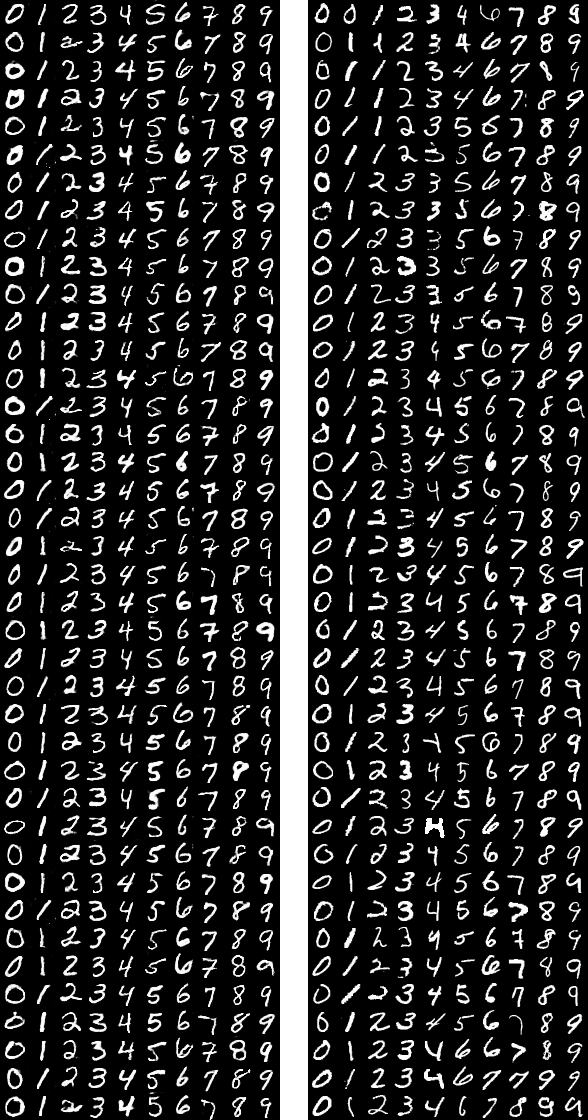 0 1 2 3 4 5 6 7 8 9
0 1 2 3 4 5 6 7 8 9
0 1 2 3 4 5 6 7 8 9
0 1 2 3 4 5 6 7 8 9
0 1 2 3 4 5 6 7 8 9
0 1 2 3 4 5 6 7 8 9
0 1 2 3 4 5 6 7 8 9
0 1 2 3 4 5 6 7 8 9
0 1 2 3 4 5 6 7 8 9
0 1 2 3 4 5 6 7 8 9
0 1 2 3 4 5 6 7 8 9
0 1 2 3 4 5 6 7 8 9
0 1 2 3 4 5 6 7 8 9
0 1 2 3 4 5 6 7 8 9
0 1 2 3 4 5 6 7 8 9
0 1 2 3 4 5 6 7 8 9
0 1 2 3 4 5 6 7 8 9
0 1 2 3 4 5 6 7 8 9
0 1 2 3 4 5 6 7 8 9
0 1 2 3 4 5 6 7 8 9
0 1 2 3 4 5 6 7 8 9
0 1 2 3 4 5 6 7 8 9
0 1 2 3 4 5 6 7 8 9
0 1 2 3 4 5 6 7 8 9
0 1 2 3 4 5 6 7 8 9
0 1 2 3 4 5 6 7 8 9
0 1 2 3 4 5 6 7 8 9
0 1 2 3 4 5 6 7 8 9
0 1 2 3 4 5 6 7 8 9
0 1 2 3 4 5 6 7 8 9
0 1 2 3 4 5 6 7 8 9
0 1 2 3 4 5 6 7 8 9
0 1 2 3 4 5 6 7 8 9
0 1 2 3 4 5 6 7 8 9
0 1 2 3 4 5 6 7 8 9
0 1 2 3 4 5 6 7 8 9
0 1 2 3 4 5 6 7 8 9
0 1 2 3 4 5 6 7 8 9
0 1 2 3 4 5 6 7 8 9
0 1 2 3 4 5 6 7 8 9
0 0 1 2 3 4 6 7 8 9
0 1 1 2 3 4 6 7 8 9
0 1 1 2 3 4 6 7 8 9
0 1 1 2 3 4 6 7 8 9
0 1 1 2 3 5 6 7 8 9
0 1 1 2 3 5 6 7 8 9
0 1 2 3 3 5 6 7 8 9
0 1 2 3 3 5 6 7 8 9
0 1 2 3 3 5 6 7 8 9
0 1 2 3 3 5 6 7 8 9
0 1 2 3 3 5 6 7 8 9
0 1 2 3 4 5 6 7 8 9
0 1 2 3 4 5 6 7 8 9
0 1 2 3 4 5 6 7 8 9
0 1 2 3 4 5 6 7 8 9
0 1 2 3 4 5 6 7 8 9
0 1 2 3 4 5 6 7 8 9
0 1 2 3 4 5 6 7 8 9
0 1 2 3 4 5 6 7 8 9
0 1 2 3 4 5 6 7 8 9
0 1 2 3 4 5 6 7 8 9
0 1 2 3 4 5 6 7 8 9
0 1 2 3 4 5 6 7 8 9
0 1 2 3 4 5 6 7 8 9
0 1 2 3 4 5 6 7 8 9
0 1 2 3 4 5 6 7 8 9
0 1 2 3 4 5 6 7 8 9
0 1 2 3 4 5 6 7 8 9
0 1 2 3 4 5 6 7 8 9
0 1 2 3 4 5 6 7 8 9
0 1 2 3 4 5 6 7 8 9
0 1 2 3 4 5 6 7 8 9
0 1 2 3 4 5 6 7 8 9
0 1 2 3 4 5 6 7 8 9
0 1 2 3 4 5 6 7 8 9
0 1 2 3 4 5 6 7 8 9
0 1 2 3 4 5 6 7 8 9
0 1 2 3 4 6 6 7 8 9
0 1 2 3 4 6 7 7 9 9
0 1 2 3 4 7 8 9